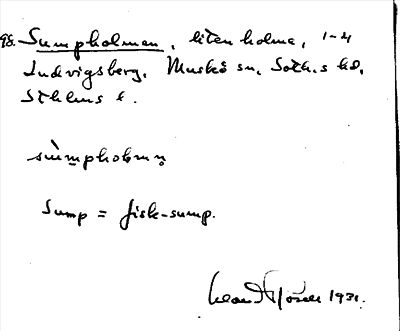 98. Sumpholmen, liten holme, 1-4
Ludvigsberg, Muskö sn, Soth.s hd,
Sthlms l.
sùmpholmn̥
Sump = fisk-sump.
1931.